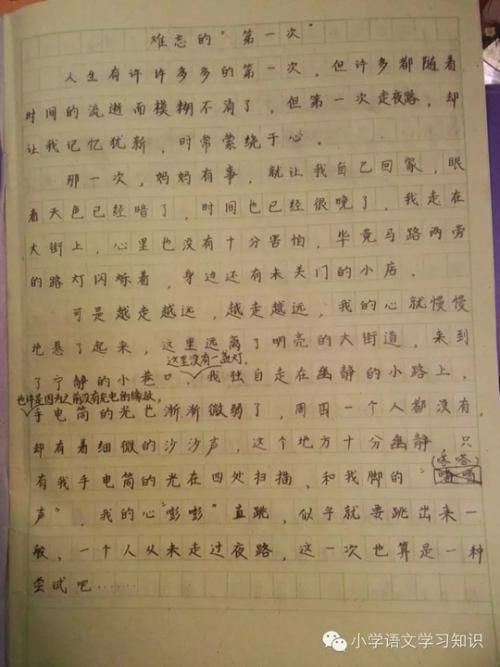 难忘的“第一次”
人生有许许多多的第一次，但许多都随着
时间的流逝而模糊不清了，但第一次走夜路，却
让我记忆犹新，时常萦绕于心。
那一次，妈妈有事，就让我自己回家，眼
看天色已经暗了，时间也已经很晚了，我走在
大街上，心里也没有十分害怕，毕竟马路两旁
的路灯闪烁着，身边还有未关门的小店。
可是越走越远，越走越远，我的心就慢慢
地悬了起来，这里远离了明亮的大街道，来到
这里没有一盏灯.
了宁静的小巷口。我独自走在幽静的小路上，
也许是因为之前没有充电的缘故，
手电筒的光也渐渐微弱了，周围一个人都没有，
却有着细微的沙沙声，这个地方十分幽静，只
有我手电筒的光在四处扫描，和我脚的“
声”，我的心“嘭嘭”直跳，似乎就要跳出来一
般，一个人从未走过夜路，这一次也算是一种
尝试吧……
小学语文学习知识